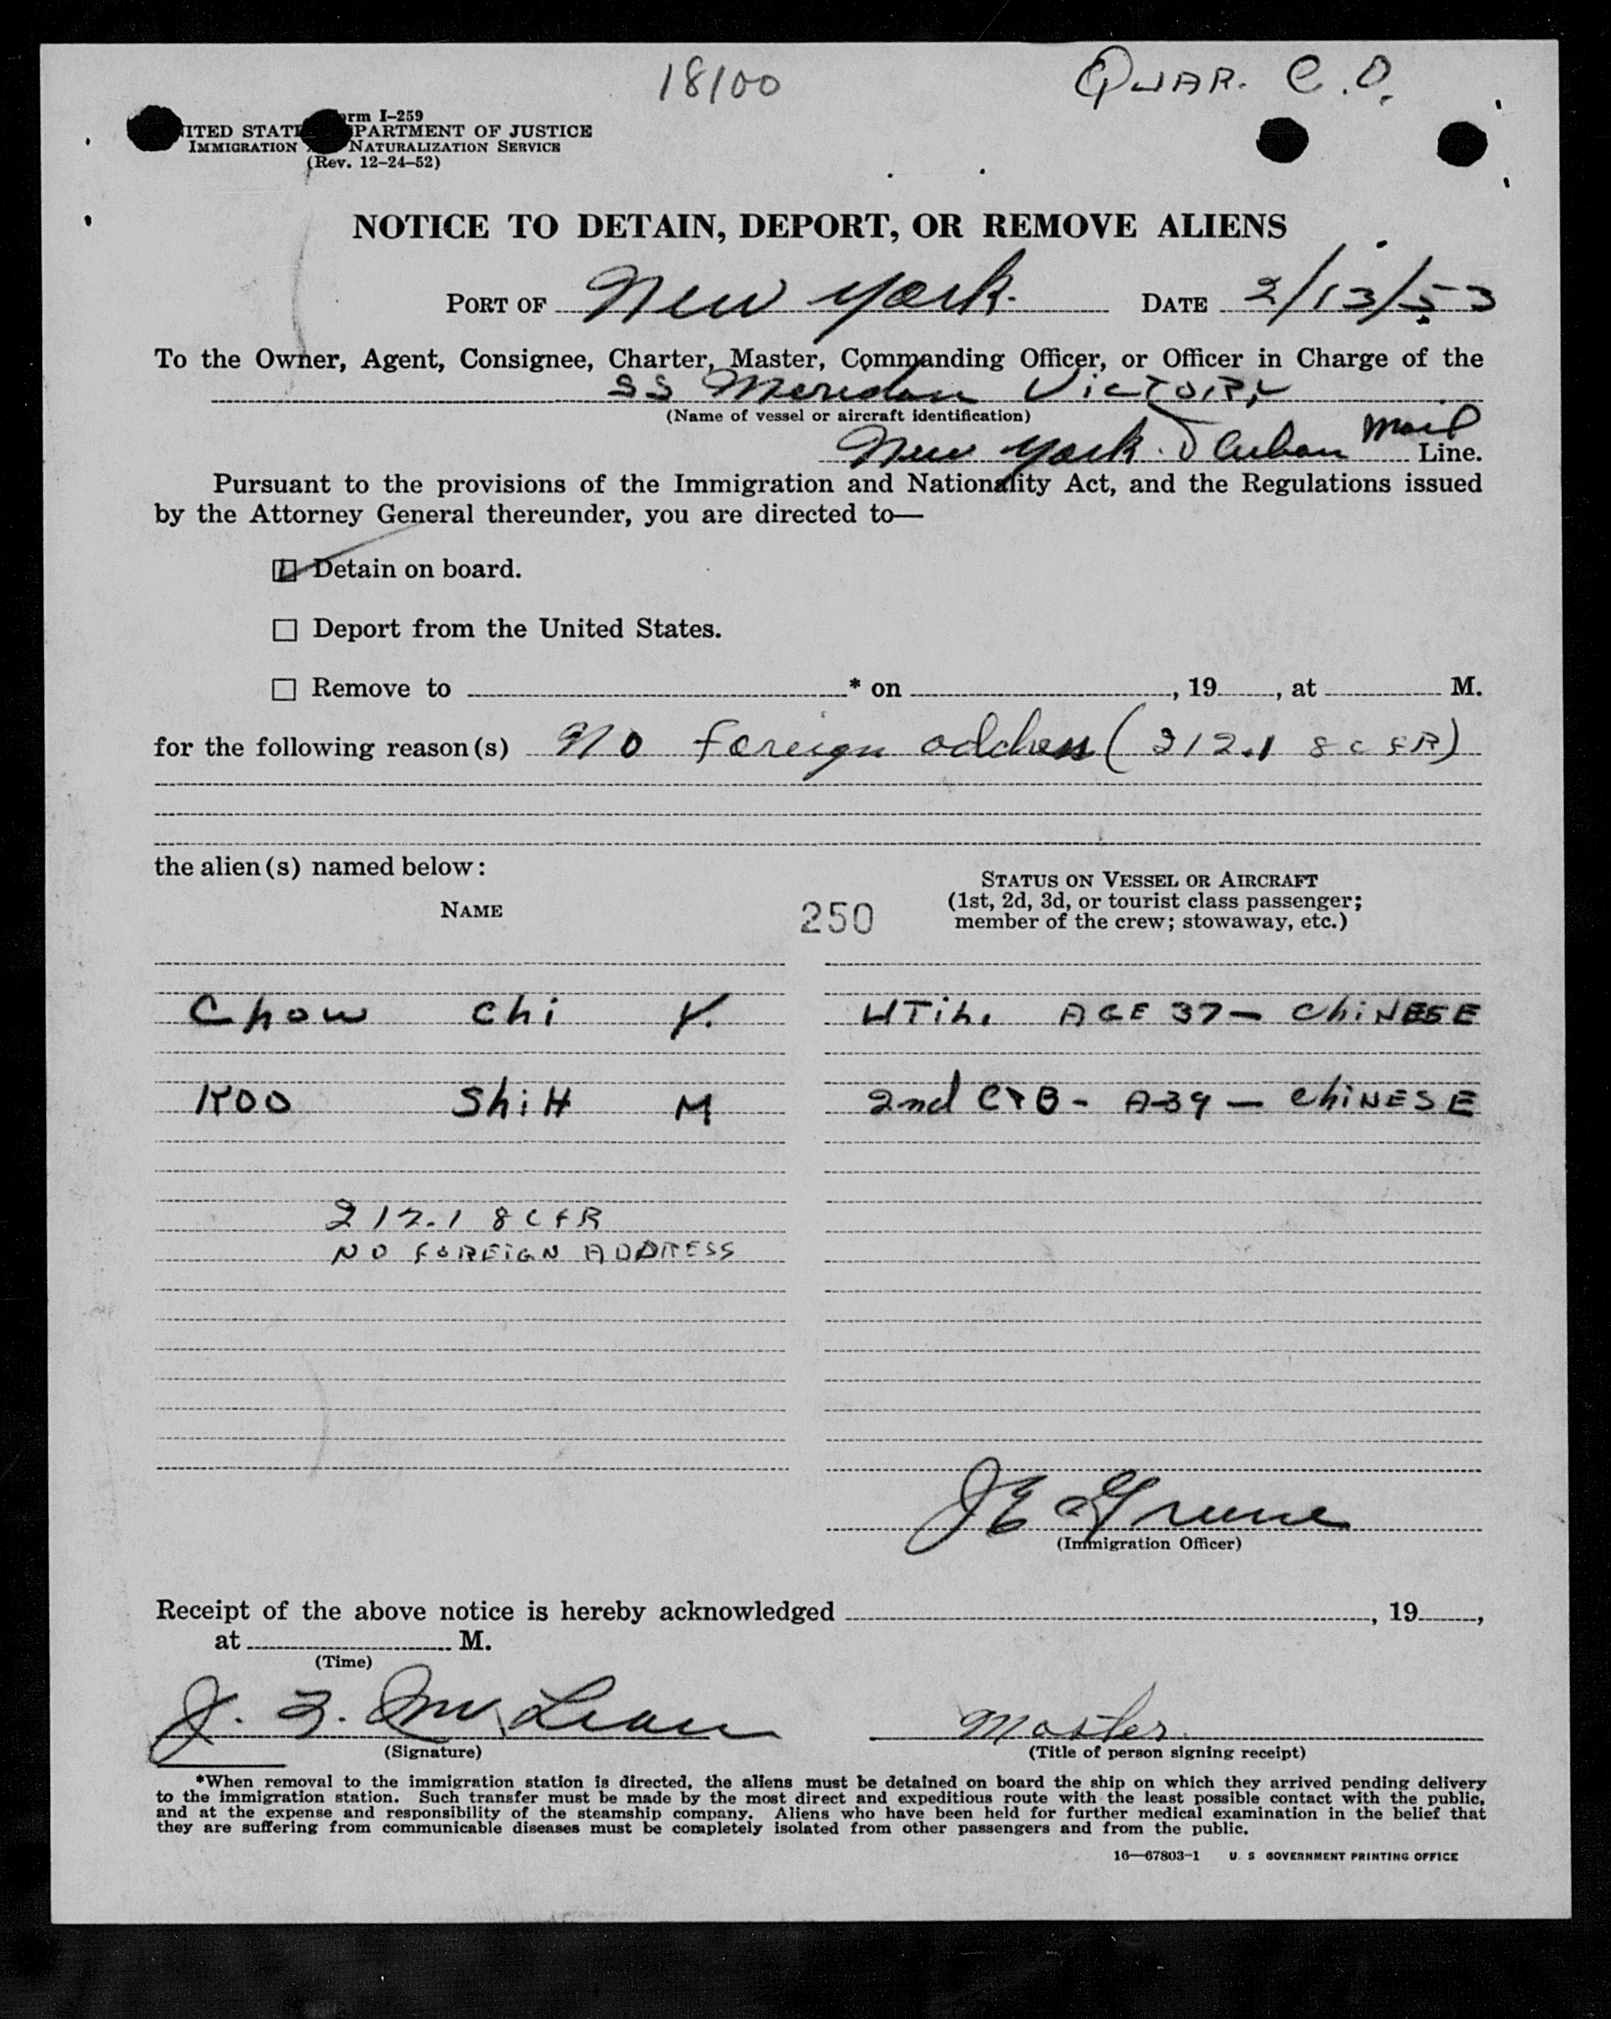 18100
QUAR. C.O.
Form I-259
UNITED STATES DEPARTMENT OF JUSTICE
IMMIGRATION NATURALIZATION SERVICE
(Rev. 12-24-52)
NOTICE TO DETAIN, DEPORT, OR REMOVE ALIENS
PORT OF New York. DATE 2/13/53
To the Owner, Agent, Consignee, Charter, Master, Commanding Officer, or Officer in Charge of the
SS Meridan VICTORY
(Name of vessel or aircraft identification)
New York & Cuban Mail Line.
Pursuant to the provisions of the Immigration and Nationality Act, and the Regulations issued
by the Attorney General thereunder, you are directed to—
Detain on board.
Deport from the United States.
Remove to * on , 19 , at M.
for the following reason(s) No foreign address (212.1 8 CFR)
the alien(s) named below:
NAME
250
STATUS ON VESSEL OR AIRCRAFT
(1st, 2d, 3d, or tourist class passenger;
member of the crew; stowaway, etc.)
Chow Chi Y. UTih. AGE 37 — ChiNESE
KOO ShiH M 2nd C&B - A-39 — ChiNESE
212.1 8 CFR
NO FOREIGN ADDRESS
JE Greene
(Immigration Officer)
Receipt of the above notice is hereby acknowledged , 19 ,
at M.
(Time)
J. F. McLean Master
(Signature) (Title of person signing receipt)
*When removal to the immigration station is directed, the aliens must be detained on board the ship on which they arrived pending delivery
to the immigration station. Such transfer must be made by the most direct and expeditious route with the least possible contact with the public,
and at the expense and responsibility of the steamship company. Aliens who have been held for further medical examination in the belief that
they are suffering from communicable diseases must be completely isolated from other passengers and from the public.
16—67803-1 U. S. GOVERNMENT PRINTING OFFICE